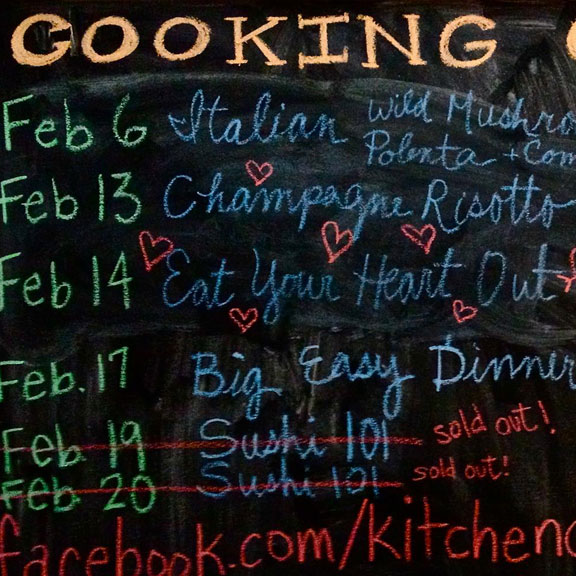 COOKING
Feb 6 Italian Wild Mushro
Polenta + Com
Feb 13 Champagne Risotto
Feb 14 Eat Your Heart Out
Feb. 17 Big Easy Dinner
Feb 19 Sushi 101 sold out!
Feb 20 Sushi 101 sold out!
facebook.com/kitchen